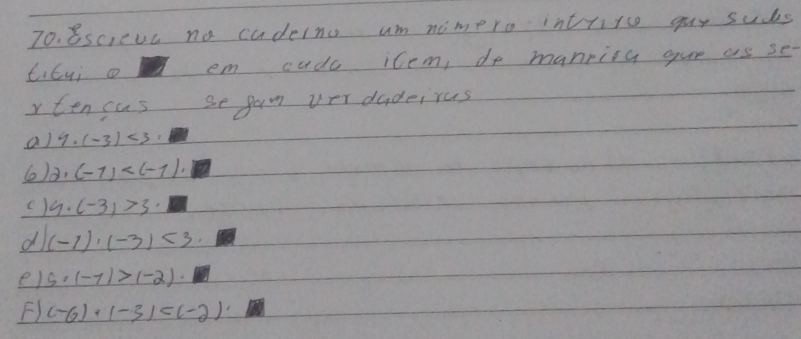 10. Escreva no caderno um número inteiro que subs
titui o ■ em cada item, de maneira que as se-
xtenças sejam verdadeiras
a) 4.(-3) < 3. ■
b) 2.(-1) < (-1). ■
c) 4.(-3) > 3. ■
d) (-1).(-3) < 3. ■
e) 5.(-1) > (-2). ■
F) (-6).(-3) < (-2). ■